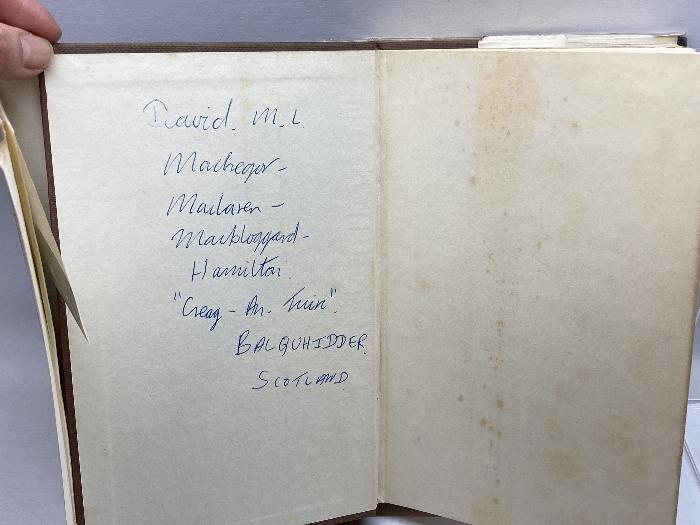 David. M. L
MacGregor-
Maclaren -
Macbloggard-
Hamilton.
"Creag - An. Tuin".
BALQUHIDDER.
SCOTLAND